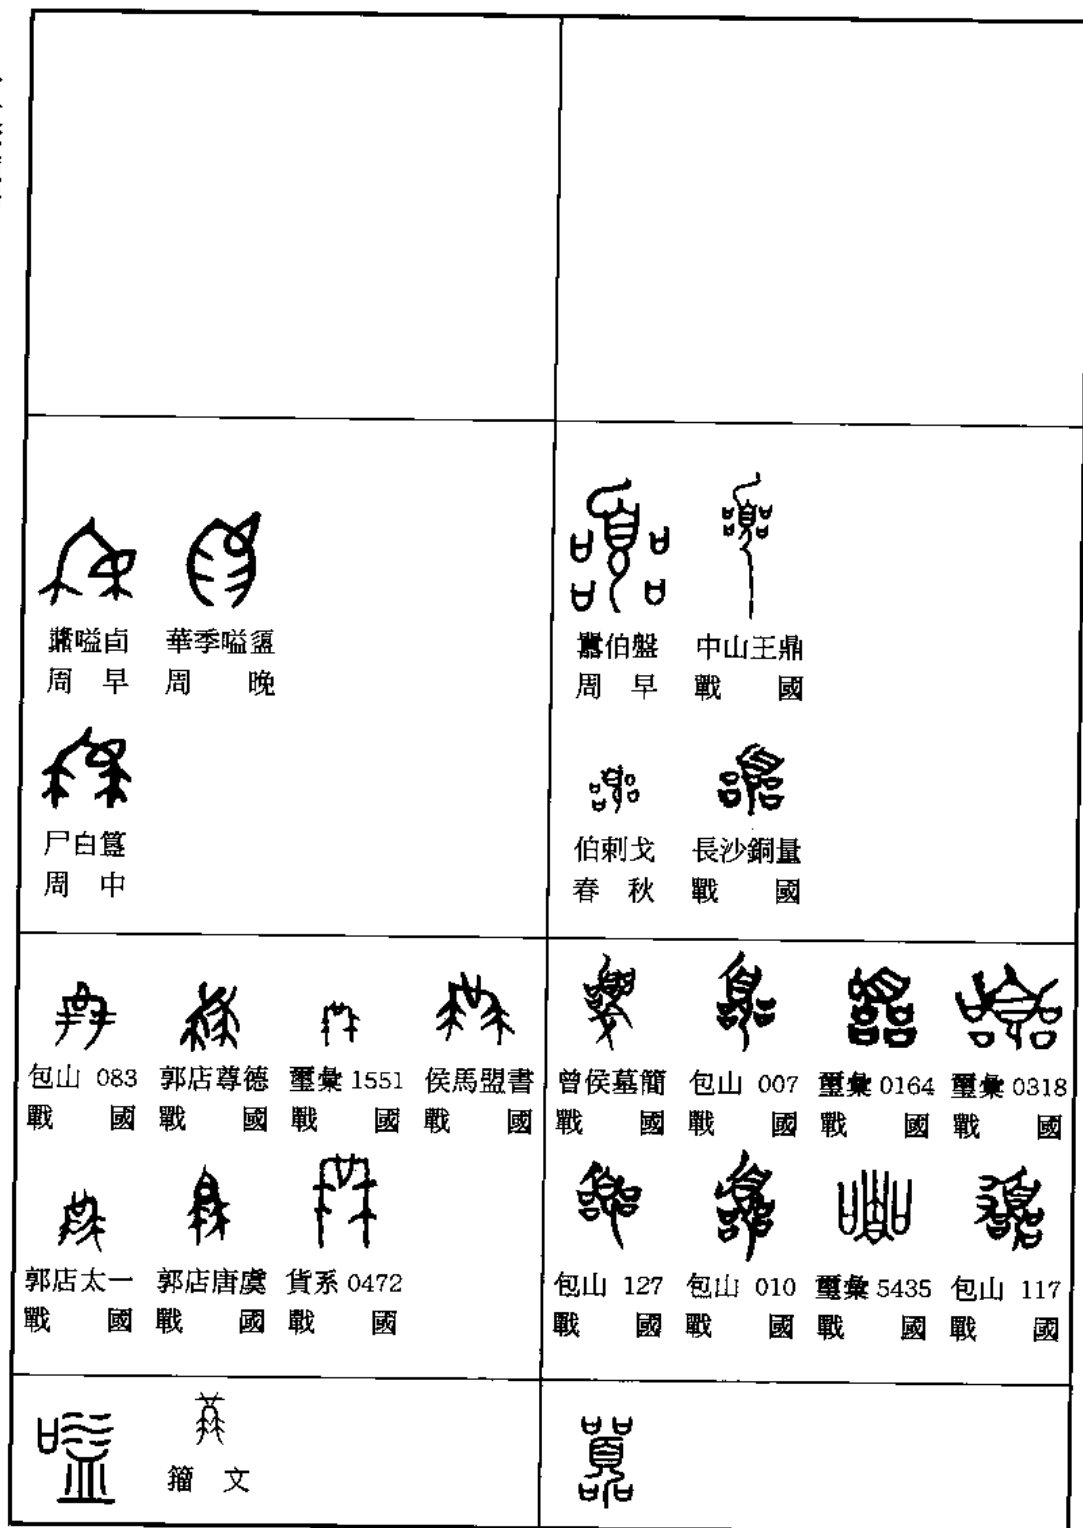 䵼嗌卣 華季嗌盨
周 早 周 晚
尸白簋
周 中
嚻伯盤 中山王鼎
周 早 戰 國
伯剌戈 長沙銅量
春 秋 戰 國
包山 083 郭店尊德 璽彙 1551 侯馬盟書
戰 國 戰 國 戰 國 戰 國
郭店太一 郭店唐虞 貨系 0472
戰 國 戰 國 戰 國
曾侯墓簡 包山 007 璽彙 0164 璽彙 0318
戰 國 戰 國 戰 國 戰 國
包山 127 包山 010 璽彙 5435 包山 117
戰 國 戰 國 戰 國 戰 國
籀 文